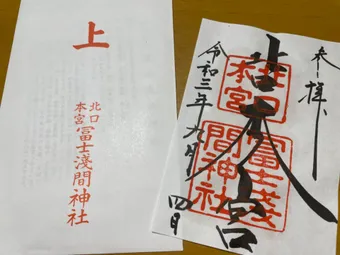 上
北口
本宮
冨士淺間神社
奉拝
北口本宮
北口
本宮
冨士淺
間神社
令和三年九月四日